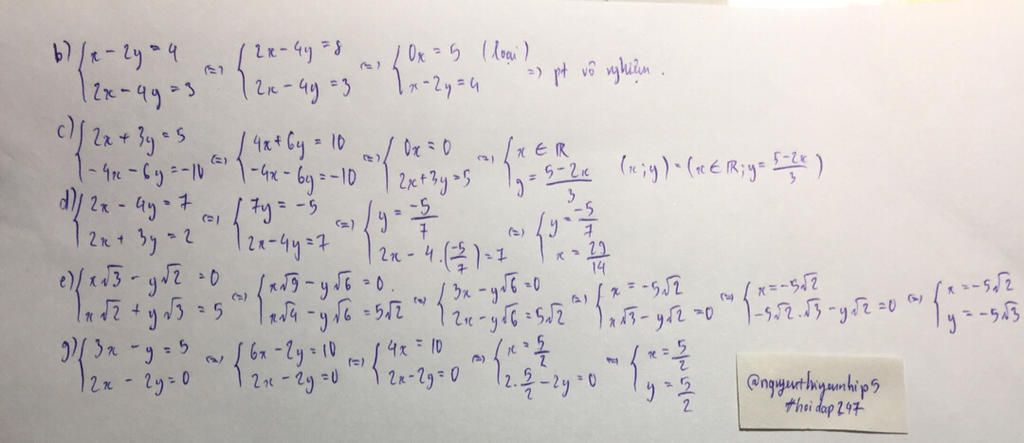 b) { x - 2y = 4 ; 2x - 4y = 3 (=) { 2x - 4y = 8 ; 2x - 4y = 3 (=) { 0x = 5 (loại) ; x - 2y = 4 => pt vô nghiệm.
c) { 2x + 3y = 5 ; -4x - 6y = -10 (=) { 4x + 6y = 10 ; -4x - 6y = -10 (=) { 0x = 0 ; 2x + 3y = 5 (=) { x ∈ R ; y = \frac{5-2x}{3} (x ; y) = (x ∈ R ; y = \frac{5-2x}{3})
d) { 2x - 4y = 7 ; 2x + 3y = 2 (=) { 7y = -5 ; 2x - 4y = 7 (=) { y = \frac{-5}{7} ; 2x - 4 . (\frac{-5}{7}) = 7 (=) { y = \frac{-5}{7} ; x = \frac{29}{14}
e) { x√3 - y√2 = 0 ; x√2 + y√3 = 5 (=) { x√9 - y√6 = 0 . ; x√4 - y√6 = 5√2 (=) { 3x - y√6 = 0 ; 2x - y√6 = 5√2 (=) { x = -5√2 ; x√3 - y√2 = 0 (=) { x = -5√2 ; -5√2 . √3 - y√2 = 0 (=) { x = -5√2 ; y = -5√3
g) { 3x - y = 5 ; 2x - 2y = 0 (=) { 6x - 2y = 10 ; 2x - 2y = 0 (=) { 4x = 10 ; 2x - 2y = 0 (=) { x = \frac{5}{2} ; 2 . \frac{5}{2} - 2y = 0 (=) { x = \frac{5}{2} ; y = \frac{5}{2}
#hoidap247